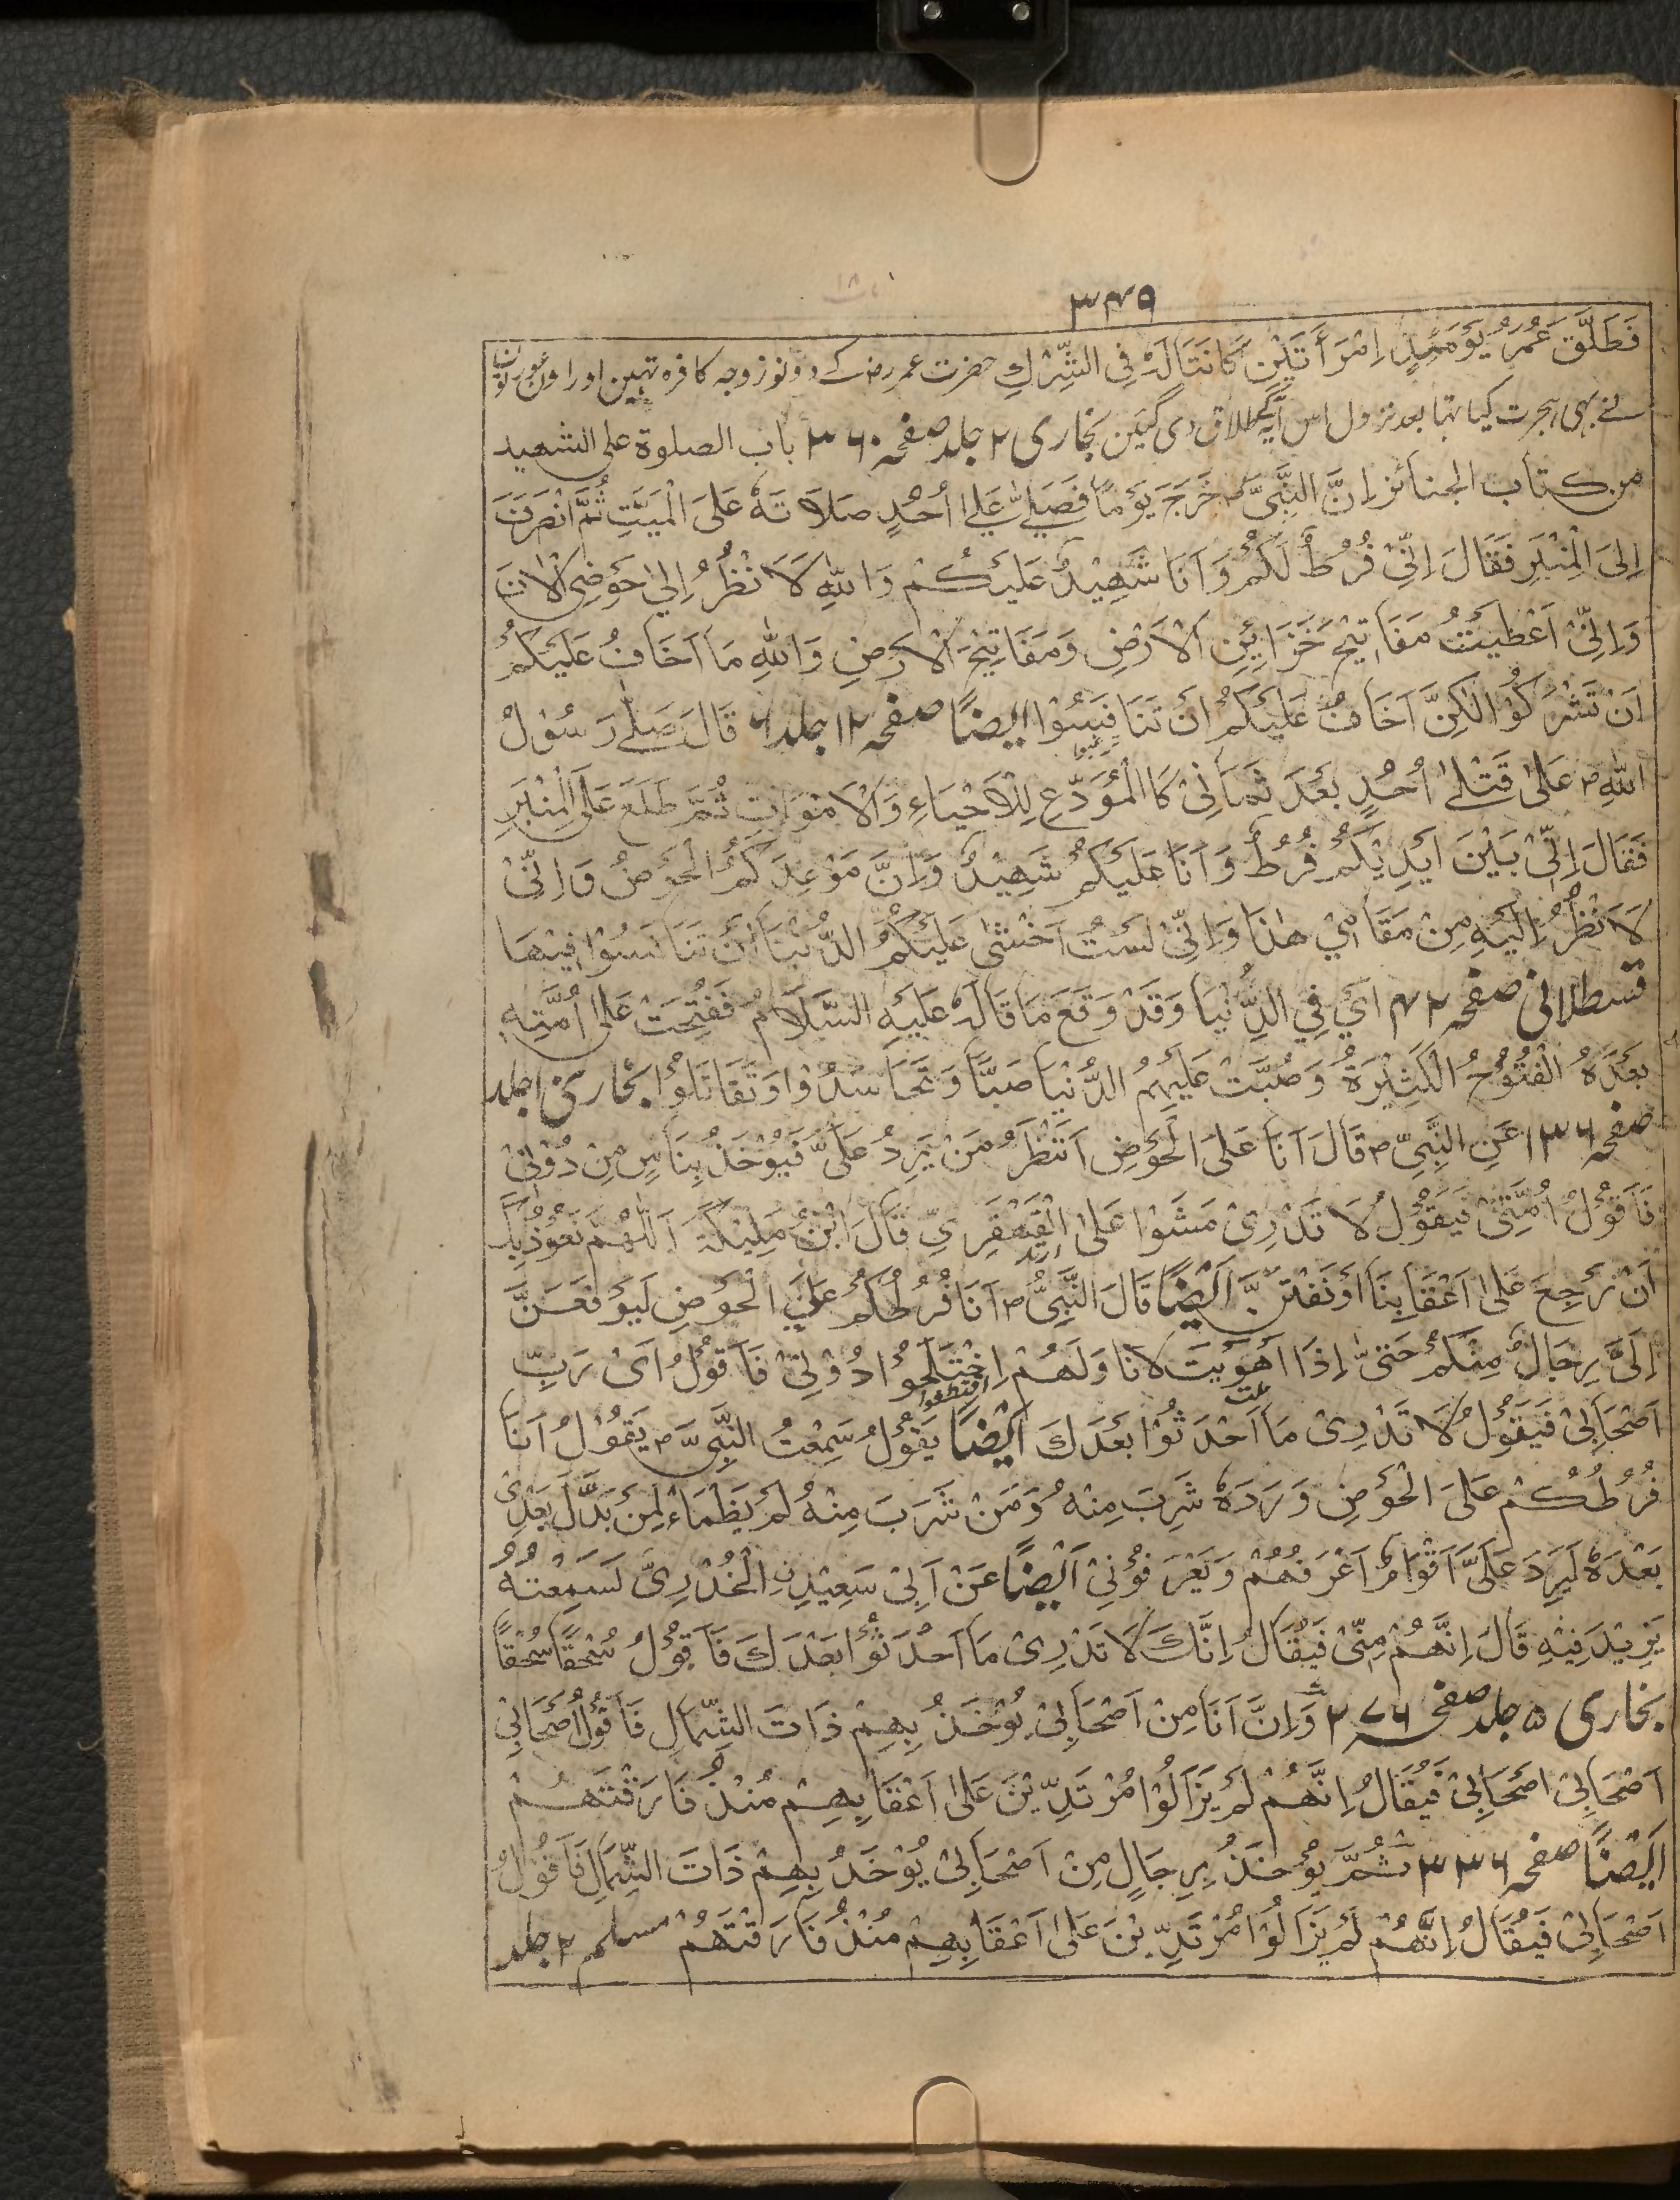 ٣٤٩
فَطَلَّقَ عُمَرُ يَوْمَئِذٍ اِمْرَأَتَيْنِ كَانَتَا لَهٗ فِی الشِّرْكِ حضرت عمر رض کے دونوز زوجہ کافرہ تہیں اور اون عورتوں
نے بہی ہجرت کیا تہا بعد نزول اس آیہ کے طلاق دی گیئں بخاری ٢ جلد صفحہ ٣٦٠ باب الصلوة علی الشهید
من کتاب الجنائز اِنَّ النَّبِیَّ ص خَرَجَ یَوْماً فَصَلّٰی عَلٰی اُحُدٍ صَلَاتَهٗ عَلَی الْمَیِّتِ ثُمَّ انْصَرَفَ
اِلَی الْمِنْبَرِ فَقَالَ اِنِّیْ فُرُطٌ لَکُمْ وَاَنَا شَهِیْدٌ عَلَیْکُمْ وَاللّٰهِ لَاَنْظُرُ اِلٰی حَوْضِی الْاٰنَ
وَاِنِّیْ اَعْطِیْتُ مَفَاتِیْحَ خَزَایِٔنِ الْاَرْضِ وَمَفَاتِیْحَ الْاَرْضِ وَاللّٰهِ مَا اَخَافُ عَلَیْکُمْ
اَنْ تَشْرَکُوْا لٰکِنَّ اَخَافُ عَلَیْکُمْ اَنْ تَنَافَسُوْا ایضًا صفحہ ١٢ جلد ٦ قَالَ صَلّٰی رَسُوْلُ
اللّٰهِ ص عَلٰی قَتْلٰی اُحُدٍ بَعْدَ ثَمَانِیْ کَا الْمُوَدِّعِ لِلْاَحْیَاءِ وَالْاَمْوَاتِ ثُمَّ طَلَعَ عَلَی الْمِنْبَرِ
فَقَالَ اِنِّیْ بَیْنَ اَیْدِیْکُمْ فُرُطٌ وَاَنَا عَلَیْکُمْ شَهِیْدٌ وَاِنَّ مَوْعِدَکُمُ الْحَوْضُ وَاِنِّیْ
لَاَنْظُرُ اِلَیْهِ مِنْ مَقَامِیْ هٰذَا وَاِنِّیْ لَسْتُ اَخْشٰی عَلَیْکُمُ الدُّنْیَا اَنْ تَنَافَسُوْا فِیْهَا
قسطلانی صفحہ ٤٢ اَیْ فِی الدُّنْیَا وَقَدْ وَقَعَ مَا قَالَهٗ عَلَیْهِ السَّلَامُ فَفُتِحَتْ عَلٰی اُمَّتِهٖ
بَعْدَهُ الْفُتُوْحُ الْکَثِیْرَةُ وَصُبَّتْ عَلَیْهِمُ الدُّنْیَا صَبًّا وَتَحَاسَدُوْا وَتَقَاتَلُوْا بخاری ١ جلد
صفحہ ١٣٦ عَنِ النَّبِیِّ ص قَالَ اَنَا عَلَی الْحَوْضِ اَنْتَظِرُ مَنْ یَرِدُ عَلَیَّ فَیُوْخَذُ بِنَاسٍ مِنْ دُوْنِیْ
فَاَقُوْلُ اُمَّتِیْ فَیَقُوْلُ لَا تَدْرِیْ مَشَوْا عَلَی الْقَهْقَرِیِّ قَالَ ابْنُ مَلِیْکَةَ اَللّٰهُمَّ نَعُوْذُ بِكَ
اَنْ نَرْجِعَ عَلٰی اَعْقَابِنَا اَوْ نَفْتَنَ اَیْضًا قَالَ النَّبِیُّ ص اَنَا فُرُطُکُمْ عَلَی الْحَوْضِ لَیَرْفَعَنَّ
اِلَیَّ رِجَالٌ مِنْکُمْ حَتّٰی اِذَا اَهْوَیْتُ لَانَاوَلَهُمْ اِخْتَلَجُوْا دُوْنِیْ فَاَقُوْلُ اَیْ رَبِّ
اَصْحَابِیْ فَیَقُوْلُ لَا تَدْرِیْ مَا اَحْدَثُوْا بَعْدَكَ اَیْضًا یَقُوْلُ سَمِعْتُ النَّبِیَّ ص یَقُوْلُ اَنَا
فُرُطُکُمْ عَلَی الْحَوْضِ وَرَدَهٗ شَرِبَ مِنْهُ وَمَنْ شَرَبَ مِنْهُ لَمْ یَظْمَاءْ لِمَنْ بَدَّلَ بَعْدِیْ
بَعْدَهٗ لَیَرِدَ عَلَیَّ اَقْوَامٌ اَعْرَفُهُمْ وَیَعْرَفُوْنِیْ اَیْضًا عَنْ اَبِیْ سَعِیْدِنِ الْخُدْرِیِّ لَسَمِعْتُهُ
یَزِیْدَ فِیْهِ قَالَ اِنَّهُمْ مِنِّیْ فَیُقَالُ اِنَّكَ لَا تَدْرِیْ مَا اَحْدَثُوْا بَعْدَكَ فَاَقُوْلُ سُحْقًا سُحْقًا
بخاری ٥ جلد صفحہ ٢٧٦ وَاِنَّ اَنَا مِنْ اَصْحَابِیْ یُوْخَذُ بِهِمْ ذَاتَ الشِّمَالِ فَاَقُوْلُ اَصْحَابِیْ
اَصْحَابِیْ اَصْحَابِیْ فَیُقَالُ اِنَّهُمْ لَمْ یَزَالُوْا مُرْتَدِّیْنَ عَلٰی اَعْقَابِهِمْ مُنْذُ فَارَقْتَهُمْ
اَیْضًا صفحہ ٣٣٦ ثُمَّ یُوْخَذُ بِرِجَالٍ مِنْ اَصْحَابِیْ یُوْخَذُ بِهِمْ ذَاتَ الشِّمَالِ فَاَقُوْلُ
اَصْحَابِیْ فَیُقَالُ اِنَّهُمْ لَمْ یَزَالُوْا مُرْتَدِّیْنَ عَلٰی اَعْقَابِهِمْ مُنْذُ فَارَقْتَهُمْ مسلم ٢ جلد